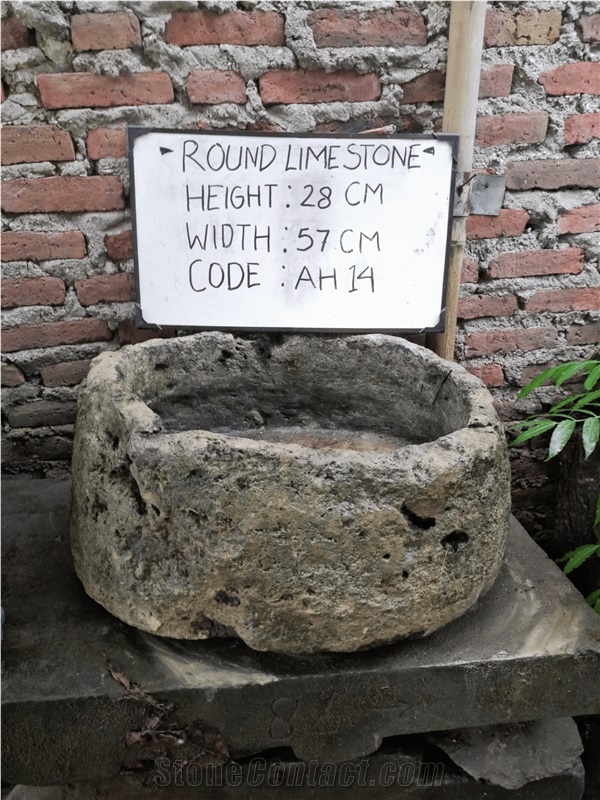 ROUND LIMESTONE
HEIGHT : 28 CM
WIDTH : 57 CM
CODE : AH 14
8
StoneContact.com